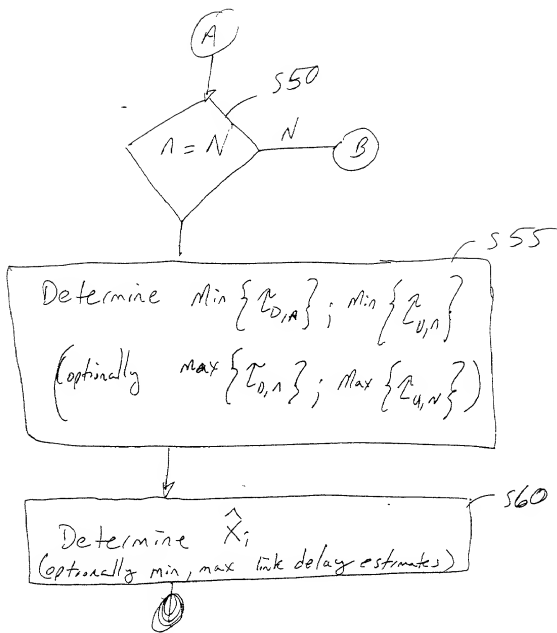 A
S50
n = N
N
B
S55
Determine Min {τD,n} ; Min {τU,n}
(optionally max {τD,n} ; Max {τU,N})
S60
Determine X̂i
(optionally min, max link delay estimates)